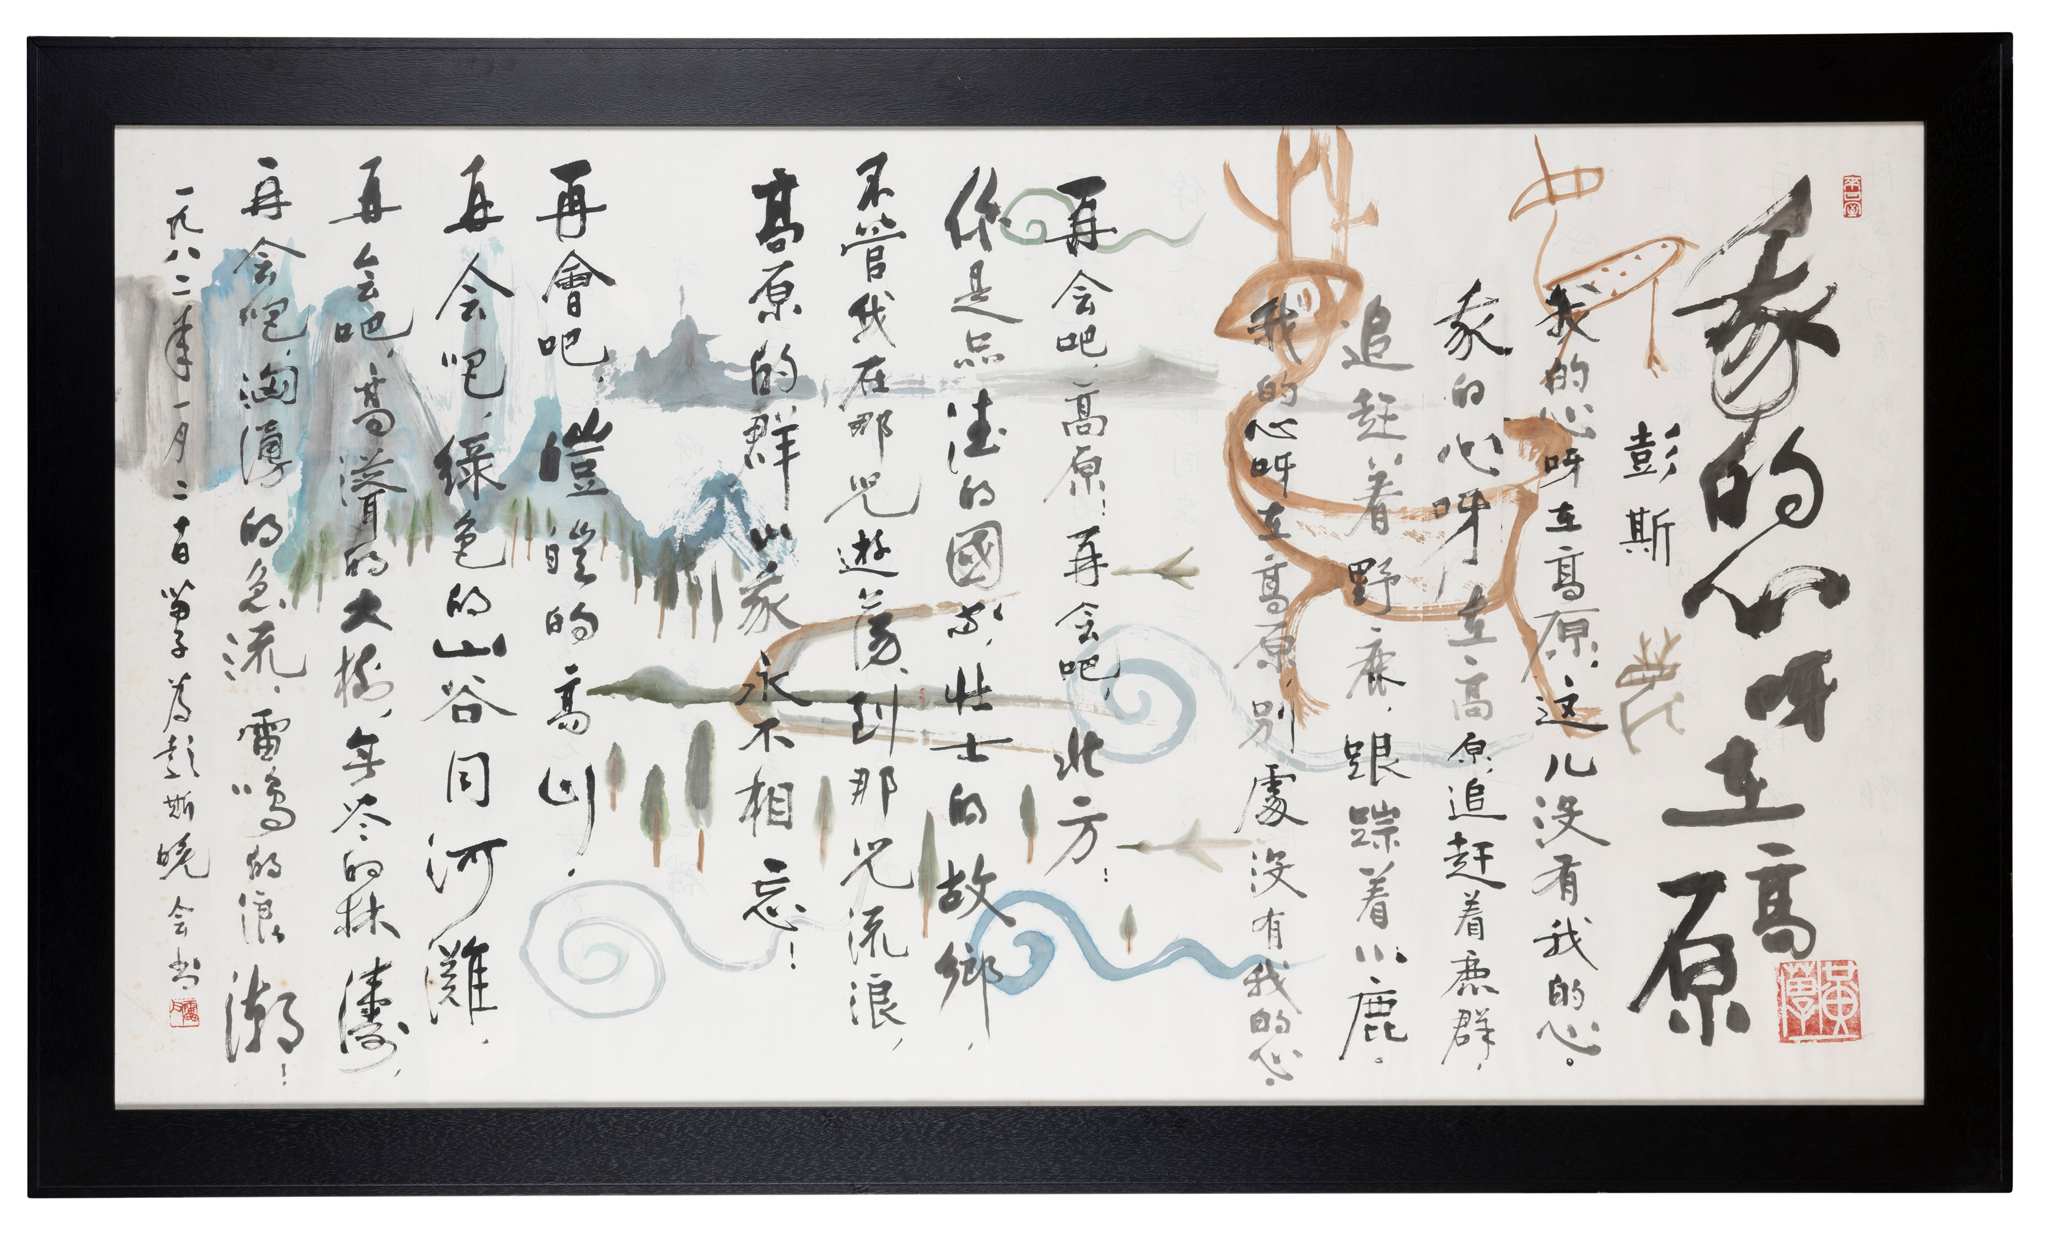 我的心呀在高原
彭斯
我的心呀在高原，这儿没有我的心。
我的心呀在高原，追赶着鹿群，
追赶着野鹿，跟踪着小鹿。
我的心呀在高原，别處没有我的心。
再会吧，高原！再会吧，北方！
你是品德的國家，壮士的故鄉，
不管我在那兒遊荡，到那兒流浪，
高原的群山我永不相忘！
再會吧，皚皚的高山，
再会吧，绿色的山谷同河灘，
再会吧，高聳的大樹，無尽的林濤，
再会吧，汹湧的急流，雷鳴的浪潮！
一九八二年一月二十日苗子為彭斯晚会書